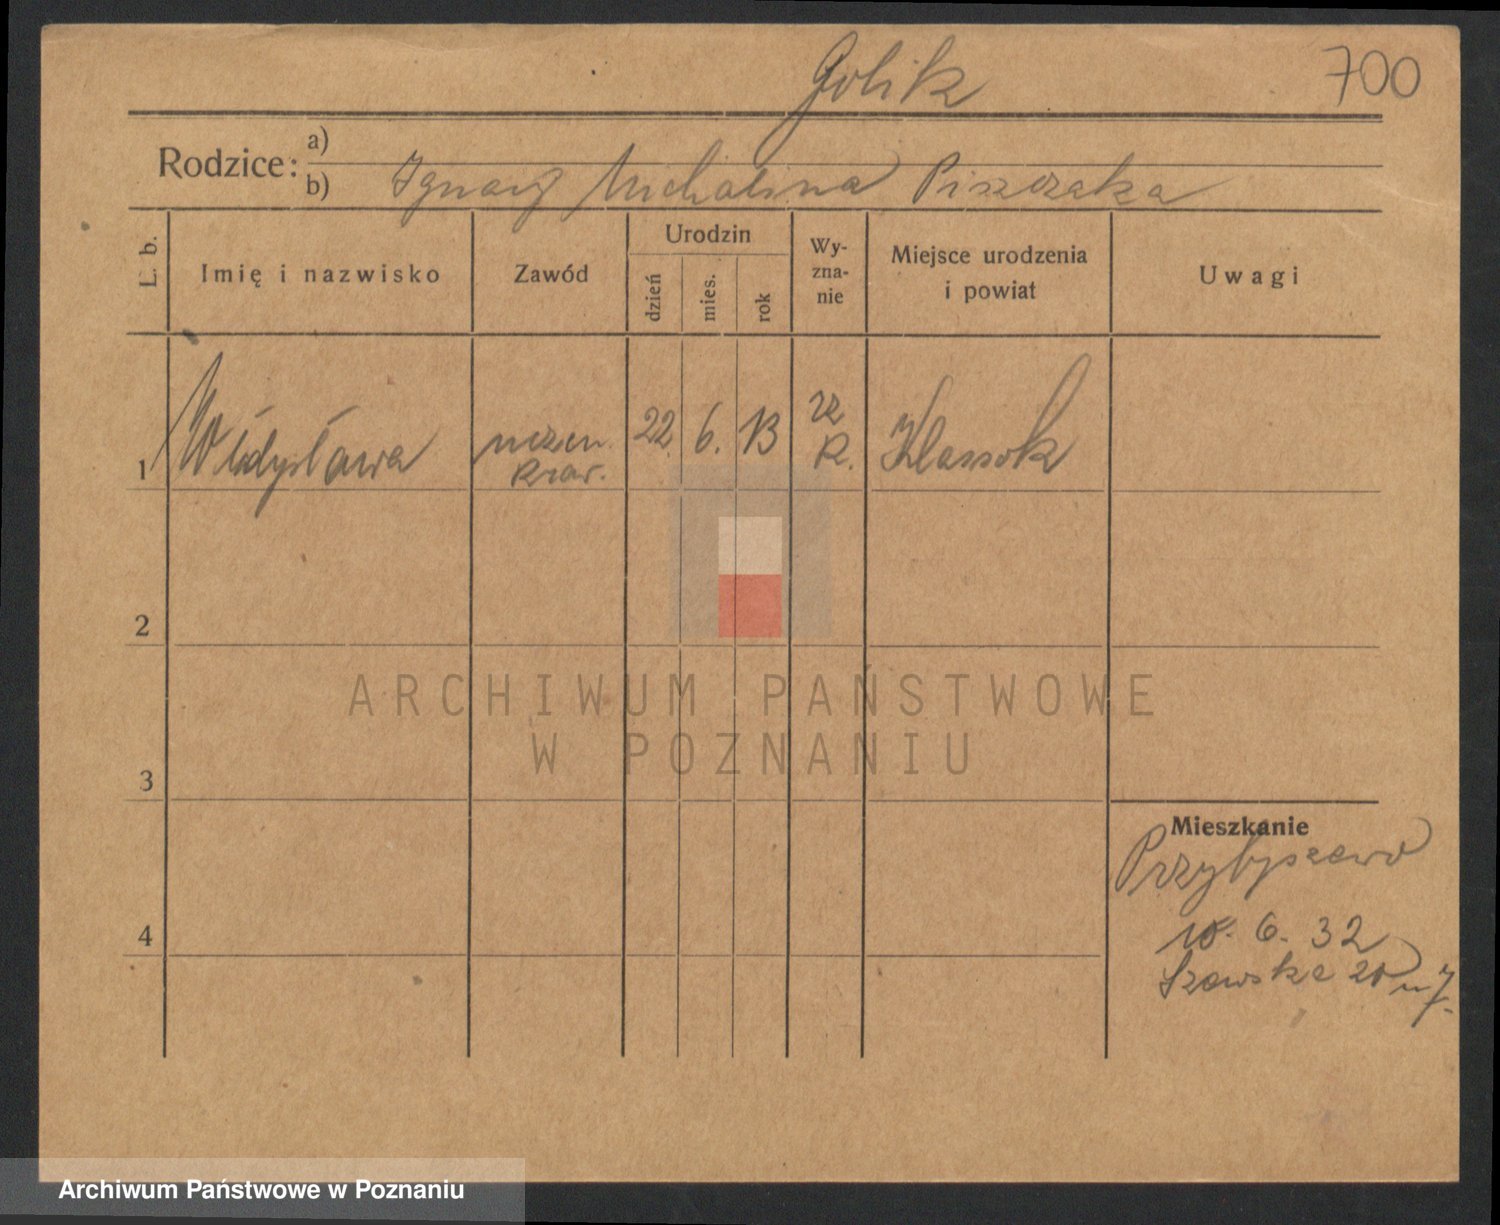 Golik
700
Rodzice: a)
b) Ignacy Michalina Piszczaka
L. b.
Imię i nazwisko
Zawód
Urodzin
dzień
mies.
rok
Wy-
zna-
nie
Miejsce urodzenia
i powiat
Uwagi
1 Władysława
uczen.
kraw.
22. 6. 13
rz
k.
Klassok
2
3
4
ARCHIWUM PAŃSTWOWE
W POZNANIU
Mieszkanie
Przybyszewo
10. 6. 32
20 m 7.
Archiwum Państwowe w Poznaniu